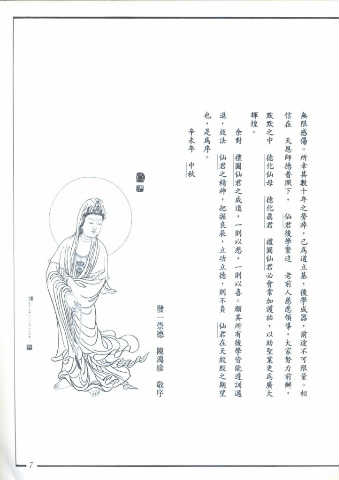 無限感傷。所幸其數十年之勞瘁，已為道立基，後學成器，前途不可限量。相
信在　天恩師德普照下，　仙君後學輩遵　老前人慈悲領導，大家努力前輝，
默默之中　德化仙母　德化真君　禮園仙君必會常加護祐，以助聖業更為廣大
輝煌。
余對　禮園仙君之成道，一則以悲，一則以喜。願其所有後學皆能遵訓邁
進，效法　仙君之精神，把握良辰，立功立德，則不負　仙君在天殷殷之期望
也。是為序。
辛未年　中秋
發一崇德　陳鴻珍　敬序
7